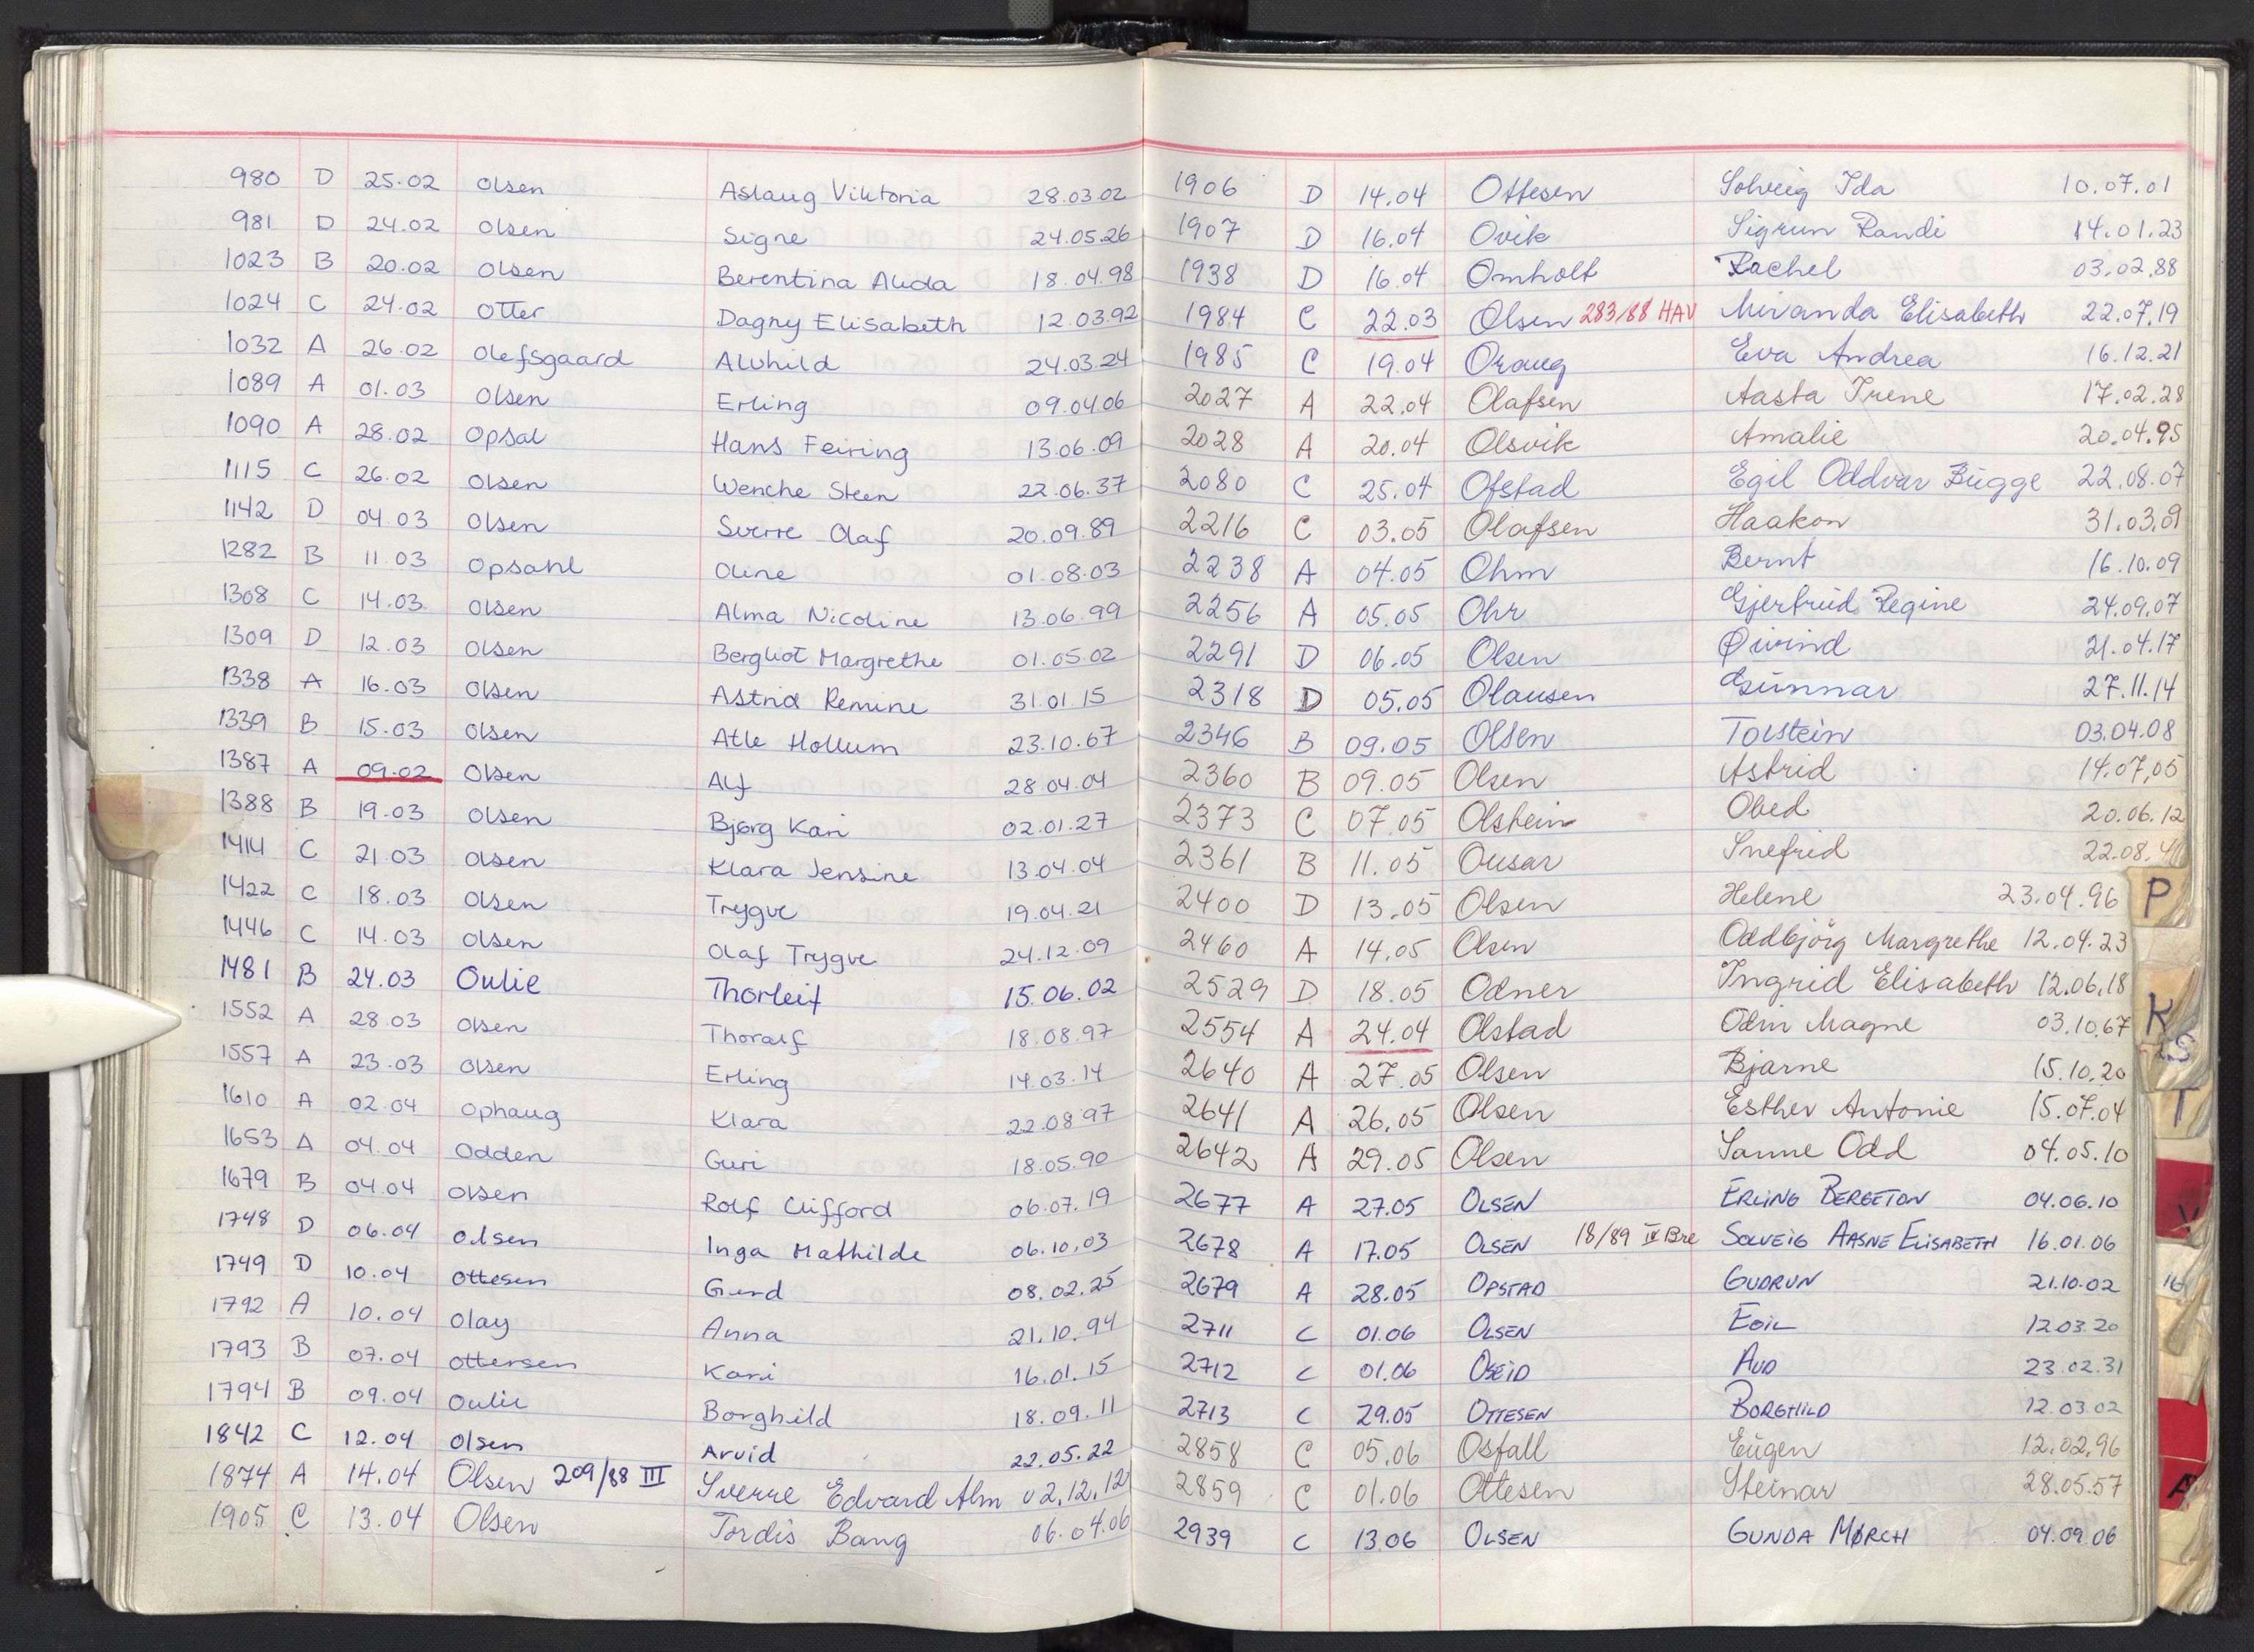 980 D 25.02 Olsen Aslaug Viktoria 28.03.02
981 D 24.02 Olsen Signe 24.05.26
1023 B 20.02 Olsen Berentina Alida 18.04.98
1024 C 24.02 Otter Dagny Elisabeth 12.03.92
1032 A 26.02 Olefsgaard Alvhild 24.03.24
1089 A 01.03 Olsen Erling 09.04.06
1090 A 28.02 Opsal Hans Feiring 13.06.09
1115 C 26.02 Olsen Wenche Steen 22.06.37
1142 D 04.03 Olsen Sverre Olaf 20.09.89
1282 B 11.03 Opsahl Oline 01.08.03
1308 C 14.03 Olsen Alma Nicoline 13.06.99
1309 D 12.03 Olsen Bergliot Margrethe 01.05.02
1338 A 16.03 Olsen Astrid Remine 31.01.15
1339 B 15.03 Olsen Atle Hollum 23.10.67
1387 A 09.02 Olsen Alf 28.04.04
1388 B 19.03 Olsen Bjørg Kari 02.01.27
1414 C 21.03 Olsen Klara Jensine 13.04.04
1422 C 18.03 Olsen Trygve 19.04.21
1446 C 14.03 Olsen Olaf Trygve 24.12.09
1481 B 24.03 Oulie Thorleif 15.06.02
1552 A 28.03 Olsen Thoralf 18.08.97
1557 A 23.03 Olsen Erling 14.03.14
1610 A 02.04 Ophaug Klara 22.08.97
1653 A 04.04 Odden Guri 18.05.90
1679 B 04.04 Olsen Rolf Clifford 06.07.19
1748 D 06.04 Olsen Inga Mathilde 06.10.03
1749 D 10.04 Ottesen Gerd 08.02.25
1792 A 10.04 Olay Anna 21.10.94
1793 B 07.04 Ottersen Kari 16.01.15
1794 B 09.04 Oulie Borghild 18.09.11
1842 C 12.04 Olsen Arvid 22.05.22
1874 A 14.04 Olsen 209/88 III Sverre Edvard Alm 02.12.12
1905 C 13.04 Olsen Tordis Bang 06.04.06
1906 D 14.04 Ottesen Solveig Ida 10.07.01
1907 D 16.04 Ovik Sigrun Randi 14.01.23
1938 D 16.04 Omholt Rachel 03.02.88
1984 C 22.03 Olsen 283/88 HAV Miranda Elisabeth 22.07.19
1985 C 19.04 Oraug Eva Andrea 16.12.21
2027 A 22.04 Olafsen Aasta Irene 17.02.28
2028 A 20.04 Olsvik Amalie 20.04.95
2080 C 25.04 Ofstad Egil Oddvar Bugge 22.08.07
2216 C 03.05 Olafsen Haakon 31.03.01
2238 A 04.05 Ohm Bernt 16.10.09
2256 A 05.05 Ohr Gjertrud Regine 24.09.07
2291 D 06.05 Olsen Øivind 21.04.17
2318 D 05.05 Olausen Gunnar 27.11.14
2346 B 09.05 Olsen Torstein 03.04.08
2360 B 09.05 Olsen Astrid 14.07.05
2373 C 07.05 Olstein Obed 20.06.12
2361 B 11.05 Ousar Snefrid 22.08.
2400 D 13.05 Olsen Helene 23.04.96
P
2460 A 14.05 Olsen Oddbjörg Margrethe 12.04.23
2529 D 18.05 Odner Ingrid Elisabeth 12.06.18
2554 A 24.04 Olstad Odin Magne 03.10.67
K
S
2640 A 27.05 Olsen Bjarne 15.10.20
2641 A 26.05 Olsen Esther Antonie 15.07.04
T
2642 A 29.05 Olsen Sanne Odd 04.05.10
2677 A 27.05 OLSEN ERLING BERGETON 04.06.10
V
2678 A 17.05 OLSEN 18/89 IV Bre SOLVEIG AASNE ELISABETH 16.01.06
2679 A 28.05 OPSTAD GUDRUN 21.10.02
2711 C 01.06 OLSEN EGIL 12.03.20
2712 C 01.06 OSEID AUD 23.02.31
2713 C 29.05 OTTESEN BORGHILD 12.03.02
2858 C 05.06 Osfall Eugen 12.02.96
2859 C 01.06 Ottesen Steinar 28.05.57
A
2939 C 13.06 OLSEN GUNDA MØRCH 04.09.06